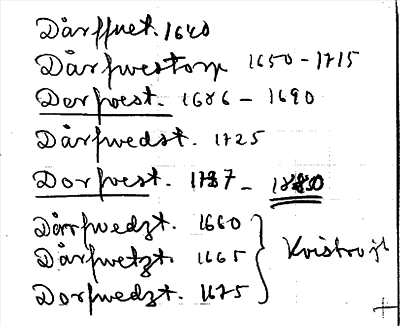 Dårffnet. 1640
Dårfwestorp 1650-1715
Dorfvest. 1686-1690
Dårfwedst. 1725
Dorfvest. 1787-
Dårfwedzt. 1660
Dårfwetzt. 1665
Dorfwedzt. 1675